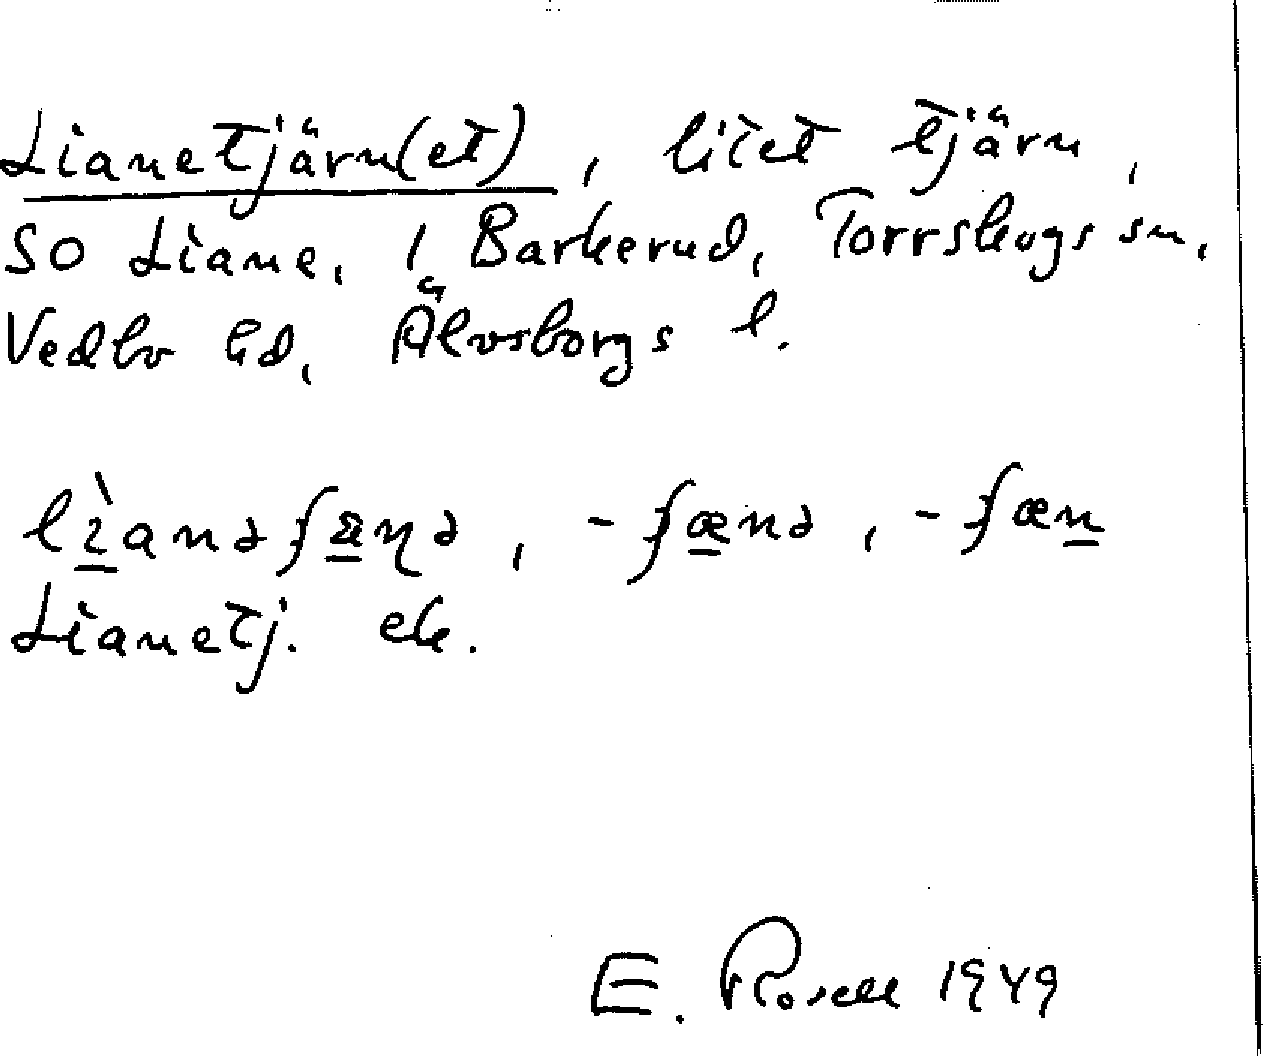 Lianetjärn(et), litet tjärn,
SO Liane, i Barkerud, Torrskogs sn,
Vedbo hd, Älvsborgs l.
lìanəʃæɳə, -ʃænə, -ʃæn
Lianetj. ek.
E. Rosell 1949